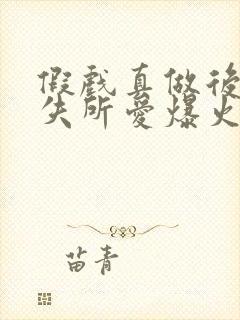 假戲真做後
失所愛爆火
苗青